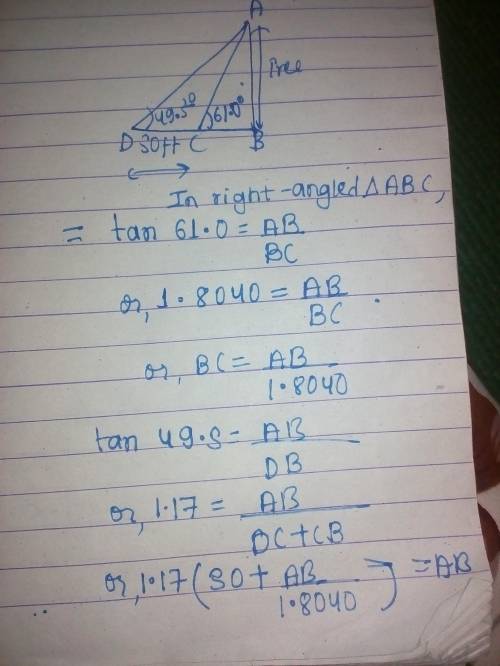 A
Tree
49.5°
61.0°
D 30ft C B
In right-angled △ABC,
= tan 61.0 = AB/BC
or, 1.8040 = AB/BC
or, BC = AB/1.8040
tan 49.5 = AB/DB
or, 1.17 = AB/DC+CB
or, 1.17(30 + AB/1.8040) = AB